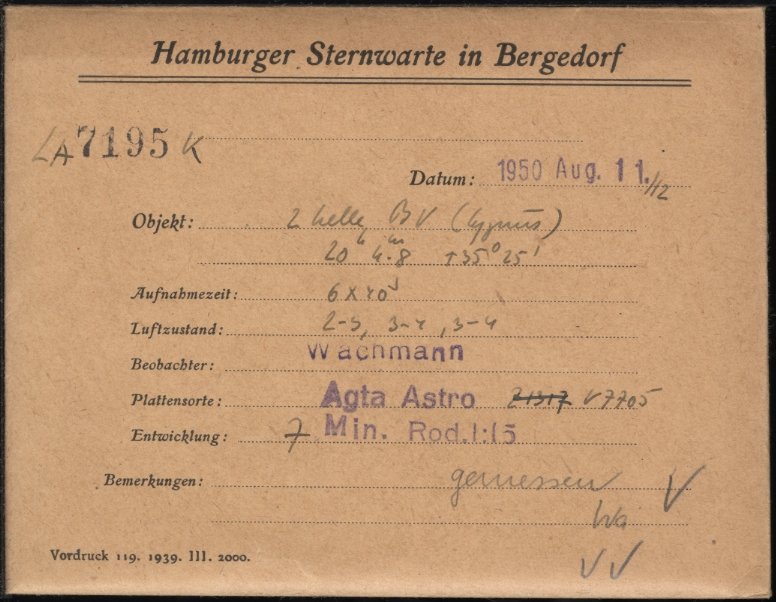 Hamburger Sternwarte in Bergedorf
LA 7195 K
Datum: 1950 Aug. 11./12
Objekt: 2 helle BV (Cygnus)
20h 4m.8 +35° 25'
Aufnahmezeit: 6 x 40s
Luftzustand: 2-3, 3-4, 3-4
Beobachter: Wachmann
Plattensorte: Agfa Astro V7705
Entwicklung: 7 Min. Rod. 1:15
Bemerkungen: gemessen V
Wa
V V
Vordruck 119. 1939. III. 2000.